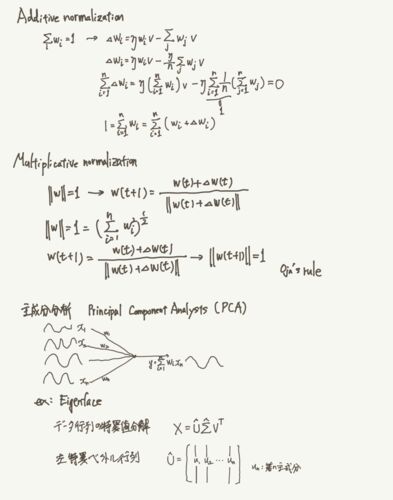 Additive normalization
Σ_i w_i = 1 → Δw_i = η w_i v − Σ_j w_j v
Δw_i = η w_i v − η/n Σ_j w_j v
Σ_{i=1}^{n} Δw_i = η (Σ_{i=1}^{n} w_i) v − η Σ_{i=1}^{n} 1/n (Σ_{j=1}^{n} w_j) = 0
1
1 = Σ_{i=1}^{n} w_i = Σ_{i=1}^{n} (w_i + Δw_i)
Multiplicative normalization
‖w‖ = 1 → w(t+1) = (w(t) + Δw(t)) / ‖w(t) + Δw(t)‖
‖w‖ = 1 = (Σ_{i=1}^{n} w_i^2)^{1/2}
w(t+1) = (w(t) + Δw(t)) / ‖w(t) + Δw(t)‖ → ‖w(t+1)‖ = 1
Oja's rule
主成分分析 Principal Component Analysts (PCA)
x_1 w_1
x_2 w_2
y = Σ_{i=1}^{n} w_i x_n
x_n w_n
ex: Eigenface
データ行列の特異値分解 X = Û Σ̂ V^T
左特異ベクトル行列 Û = [u_1 u_2 … u_n]
u_n: 第n主成分